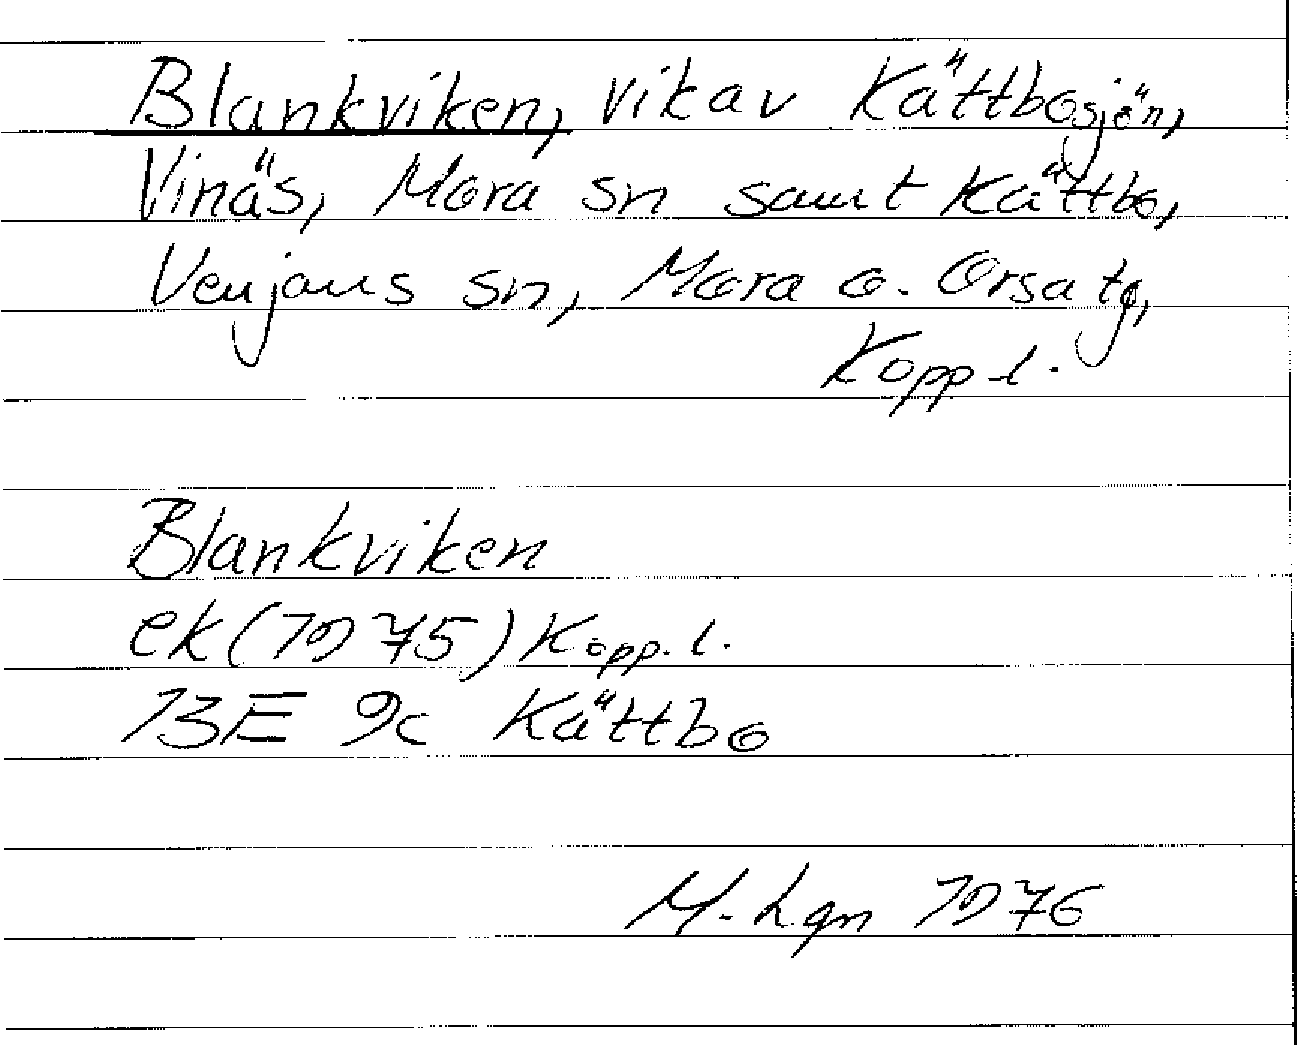 Blankviken, vik av Kättbosjön,
Vinäs, Mora sn samt Kättbo,
Venjans sn, Mora o. Orsa tg,
Kopp.l.
Blankviken
ek (1975) Kopp. l.
13E 9c Kättbo
M. Lgn 1976